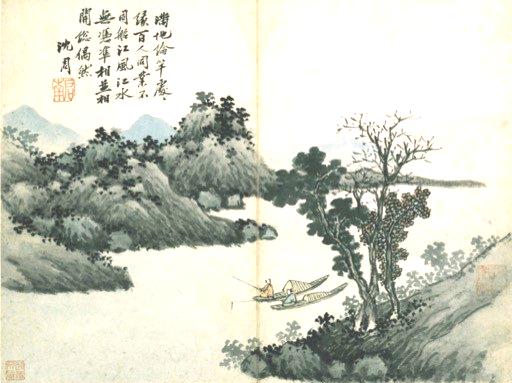 滿地綸竿處々
緣百人同業不
同船江風江水
無憑準相並相
開總偶然
沈周